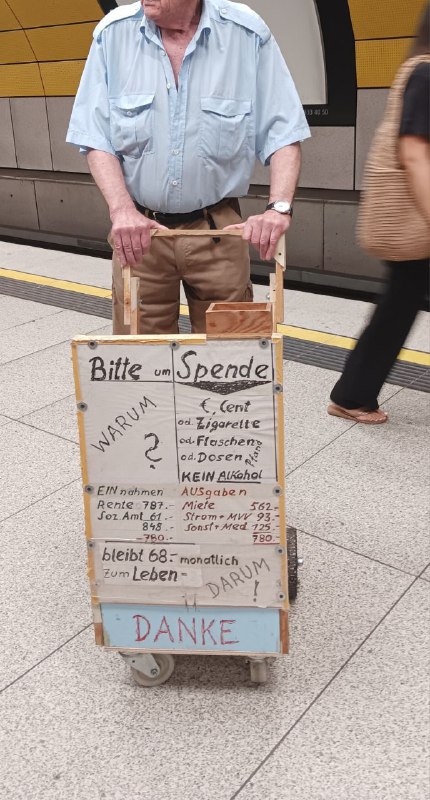 Bitte um Spende
WARUM
?
€, Cent
od. Zigarette
od. Flaschen
od. Dosen Pfand
KEIN Alkohol
EINnahmen
Rente 787.-
Soz Amt 61.-
848.-
-780.-
AUSgaben
Miete 562.-
Strom+MVV 93.-
Sonst+Med 125.-
780.-
bleibt 68.- monatlich
zum Leben-
DARUM
!
DANKE